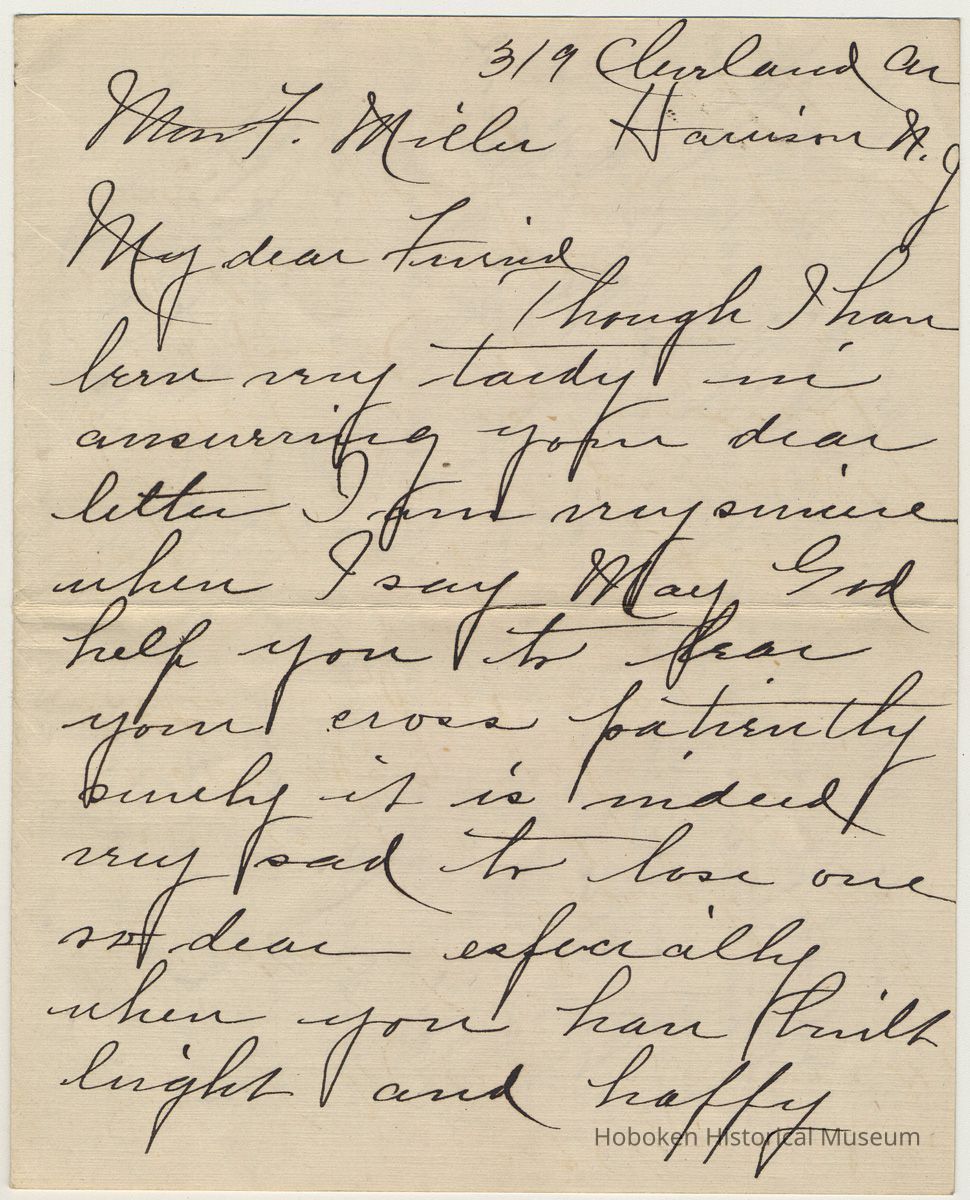 319 Cleveland Av
Harrison N. J
Mrs F. Miller
My dear Friend
Though I have
been very tardy in
answering your dear
letter I am very sincere
when I say May God
help you to bear
your cross patiently
surely it is indeed
very sad to lose one
so dear especially
when you have built
bright and happy
Hoboken Historical Museum